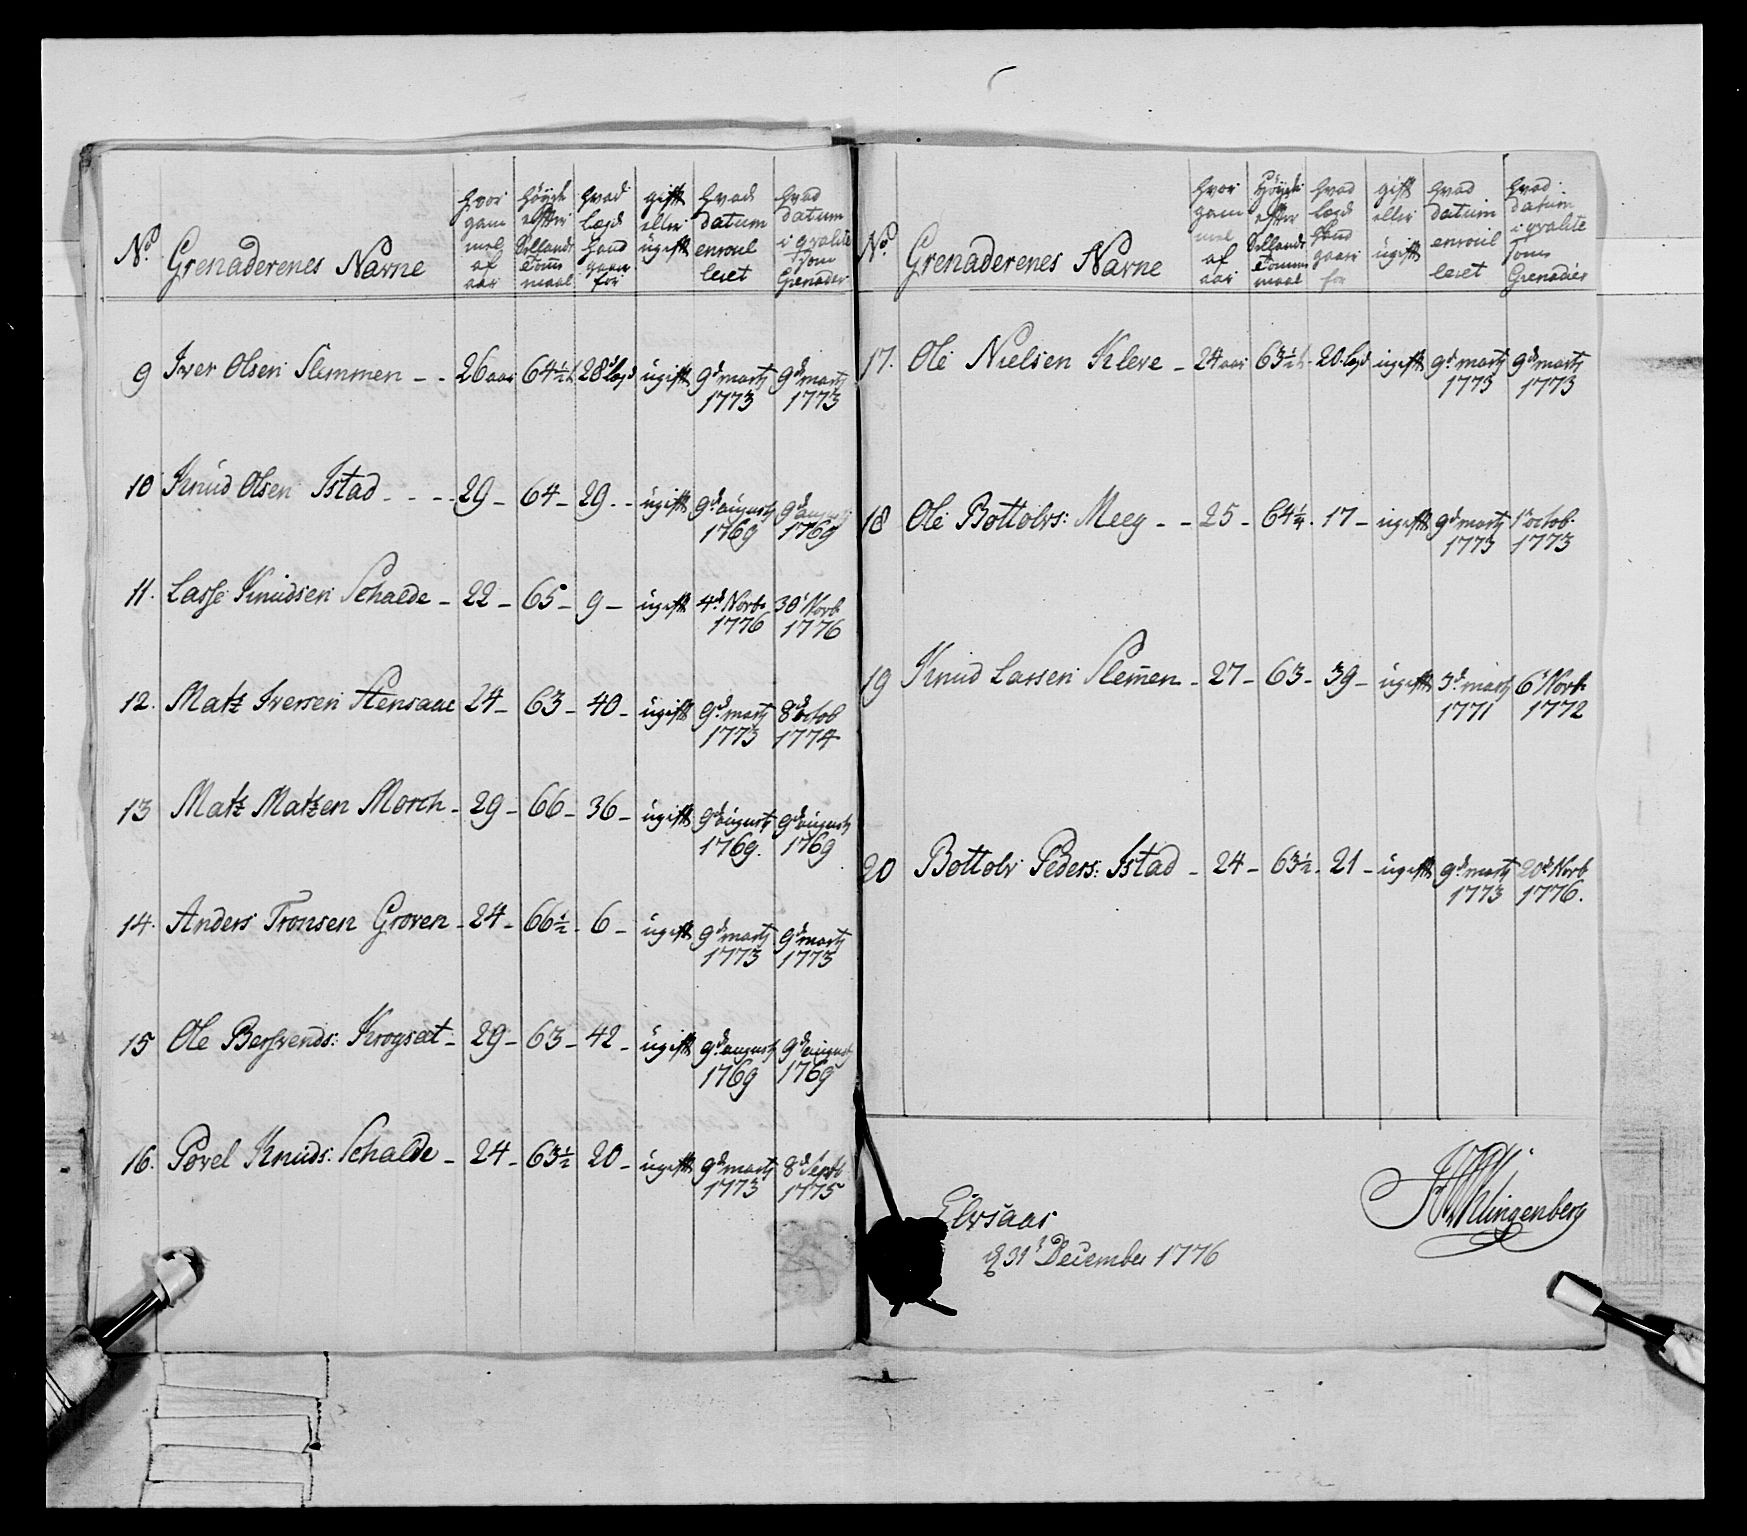 No Grenaderenes Navne hvor gammel af aar høyde effter Sellands tomme maal hvad Lægd hand gaaer for gift eller ugift hvad datum enroulleret hvad datum i qvalite som Grenader
9 Iver Olsen Slemmen - - 26 aar 64½ t 28de Lægd ugift 9d martz 1773 9d martz 1773
10 Knud Olsen Istad - - - - 29 - 64 - 29 - - ugift 9d augustz 1769 9d augustz 1769
11. Lasse Knudsen Schalde - 22 - 65 - 9 - ugift 4d Novb. 1776 30t Novb 1776
12. Matz Iversen Stensaae 24 - 63 - 40 - ugift 9d martz 1773 8d octob 1774
13 Matz Matzen Morch - 29 - 66 - 36 - ugift 9d augustz 1769. 9d augustz 1769
14. Anders Tronsen Groven - 24 - 66½ - 6 - ugift 9d martz 1773 9d martz 1773
15 Ole Bersvends: Krogsæt - 29 - 63 - 42 - ugift 9d augustz 1769 9d augustz 1769
16. Povel Knuds: Schalde - 24 - 63½ 20 - ugift 9d martz 1773 8d Septb 1775
No Grenaderenes Navne hvor gammel af aar Høyde effter Sellands tomme maal hvad Lægd hand gaaer for gift eller ugift hvad datum enroulleret hvad datum i qvalite som Grenadier
17. Ole Nielsen Kleve - 24 aar 63½ t 20. Lægd ugift 9d martz 1773 9d martz 1773
18 Ole Bottolvs: Meey - - 25 - 64¼ - 17 - ugift 9d martz 1773 1t octob. 1773
19 Knud Lassen Slem̄en - 27 - 63 - 39 - ugift 3d martz 1771 6t Novb. 1772
20 Bottolv Peders: Istad - 24 - 63½ - 21 - ugift 9d martz 1773 20d Novb 1776.
Elvsaas
d 31t December 1776
Klingenberg